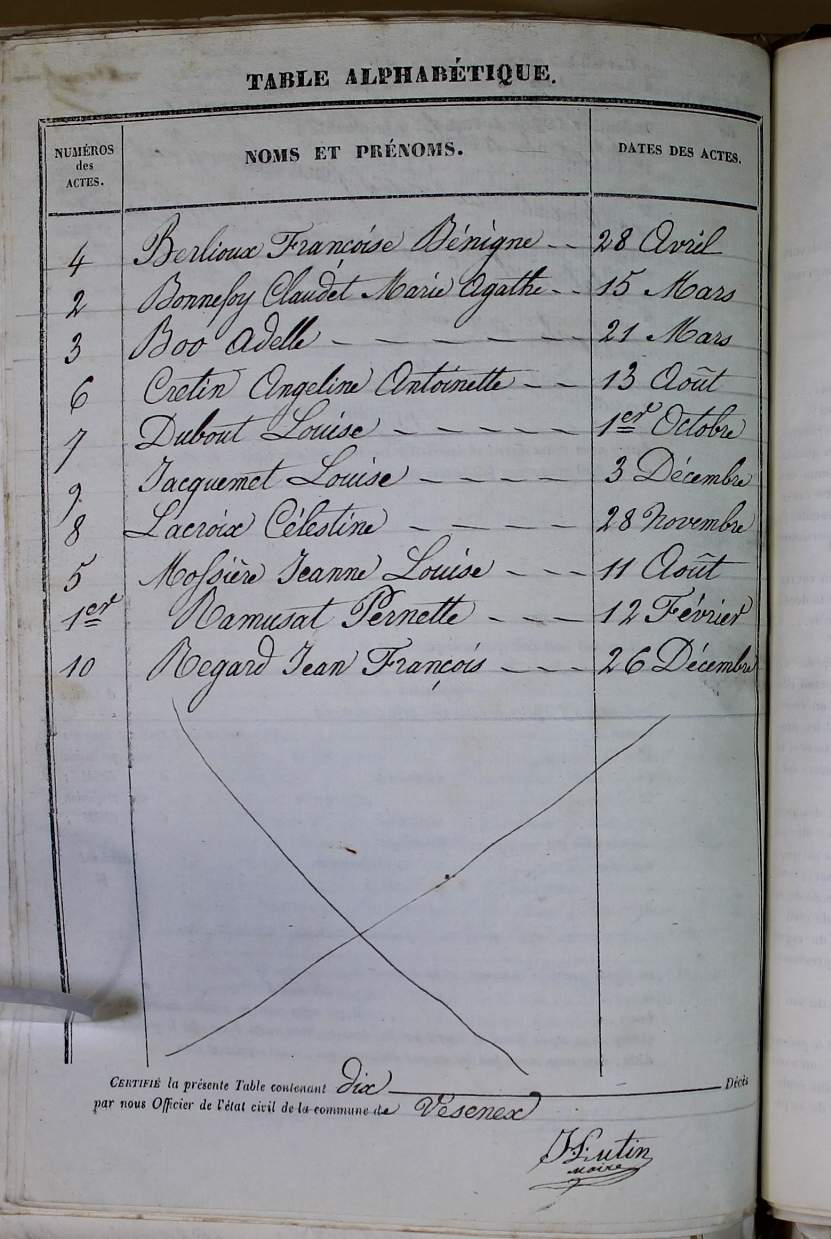 TABLE ALPHABÉTIQUE.
NUMÉROS des ACTES. NOMS ET PRÉNOMS. DATES DES ACTES.
4 Berlioux Françoise Bénigne -- 28 Avril
2 Bonnefoy Claudet Marie Agathe -- 15 Mars
3 Boo Adelle ------ 21 Mars
6 Cretin Angeline Antoinette -- 13 Août
7 Dubout Louise ----- 1er Octobre
9. Jacquemet Louise ---- 3 Décembre
8 Lacroix Célestine ---- 28 Novembre
5 Mossière Jeanne Louise --- 11 Août
1er Ramusat Pernette --- 12 Février
10 Regard Jean François --- 26 Décembre
CERTIFIÉ la présente Table contenant dix Décès
par nous Officier de l'état civil de la commune de Vesenex
maire